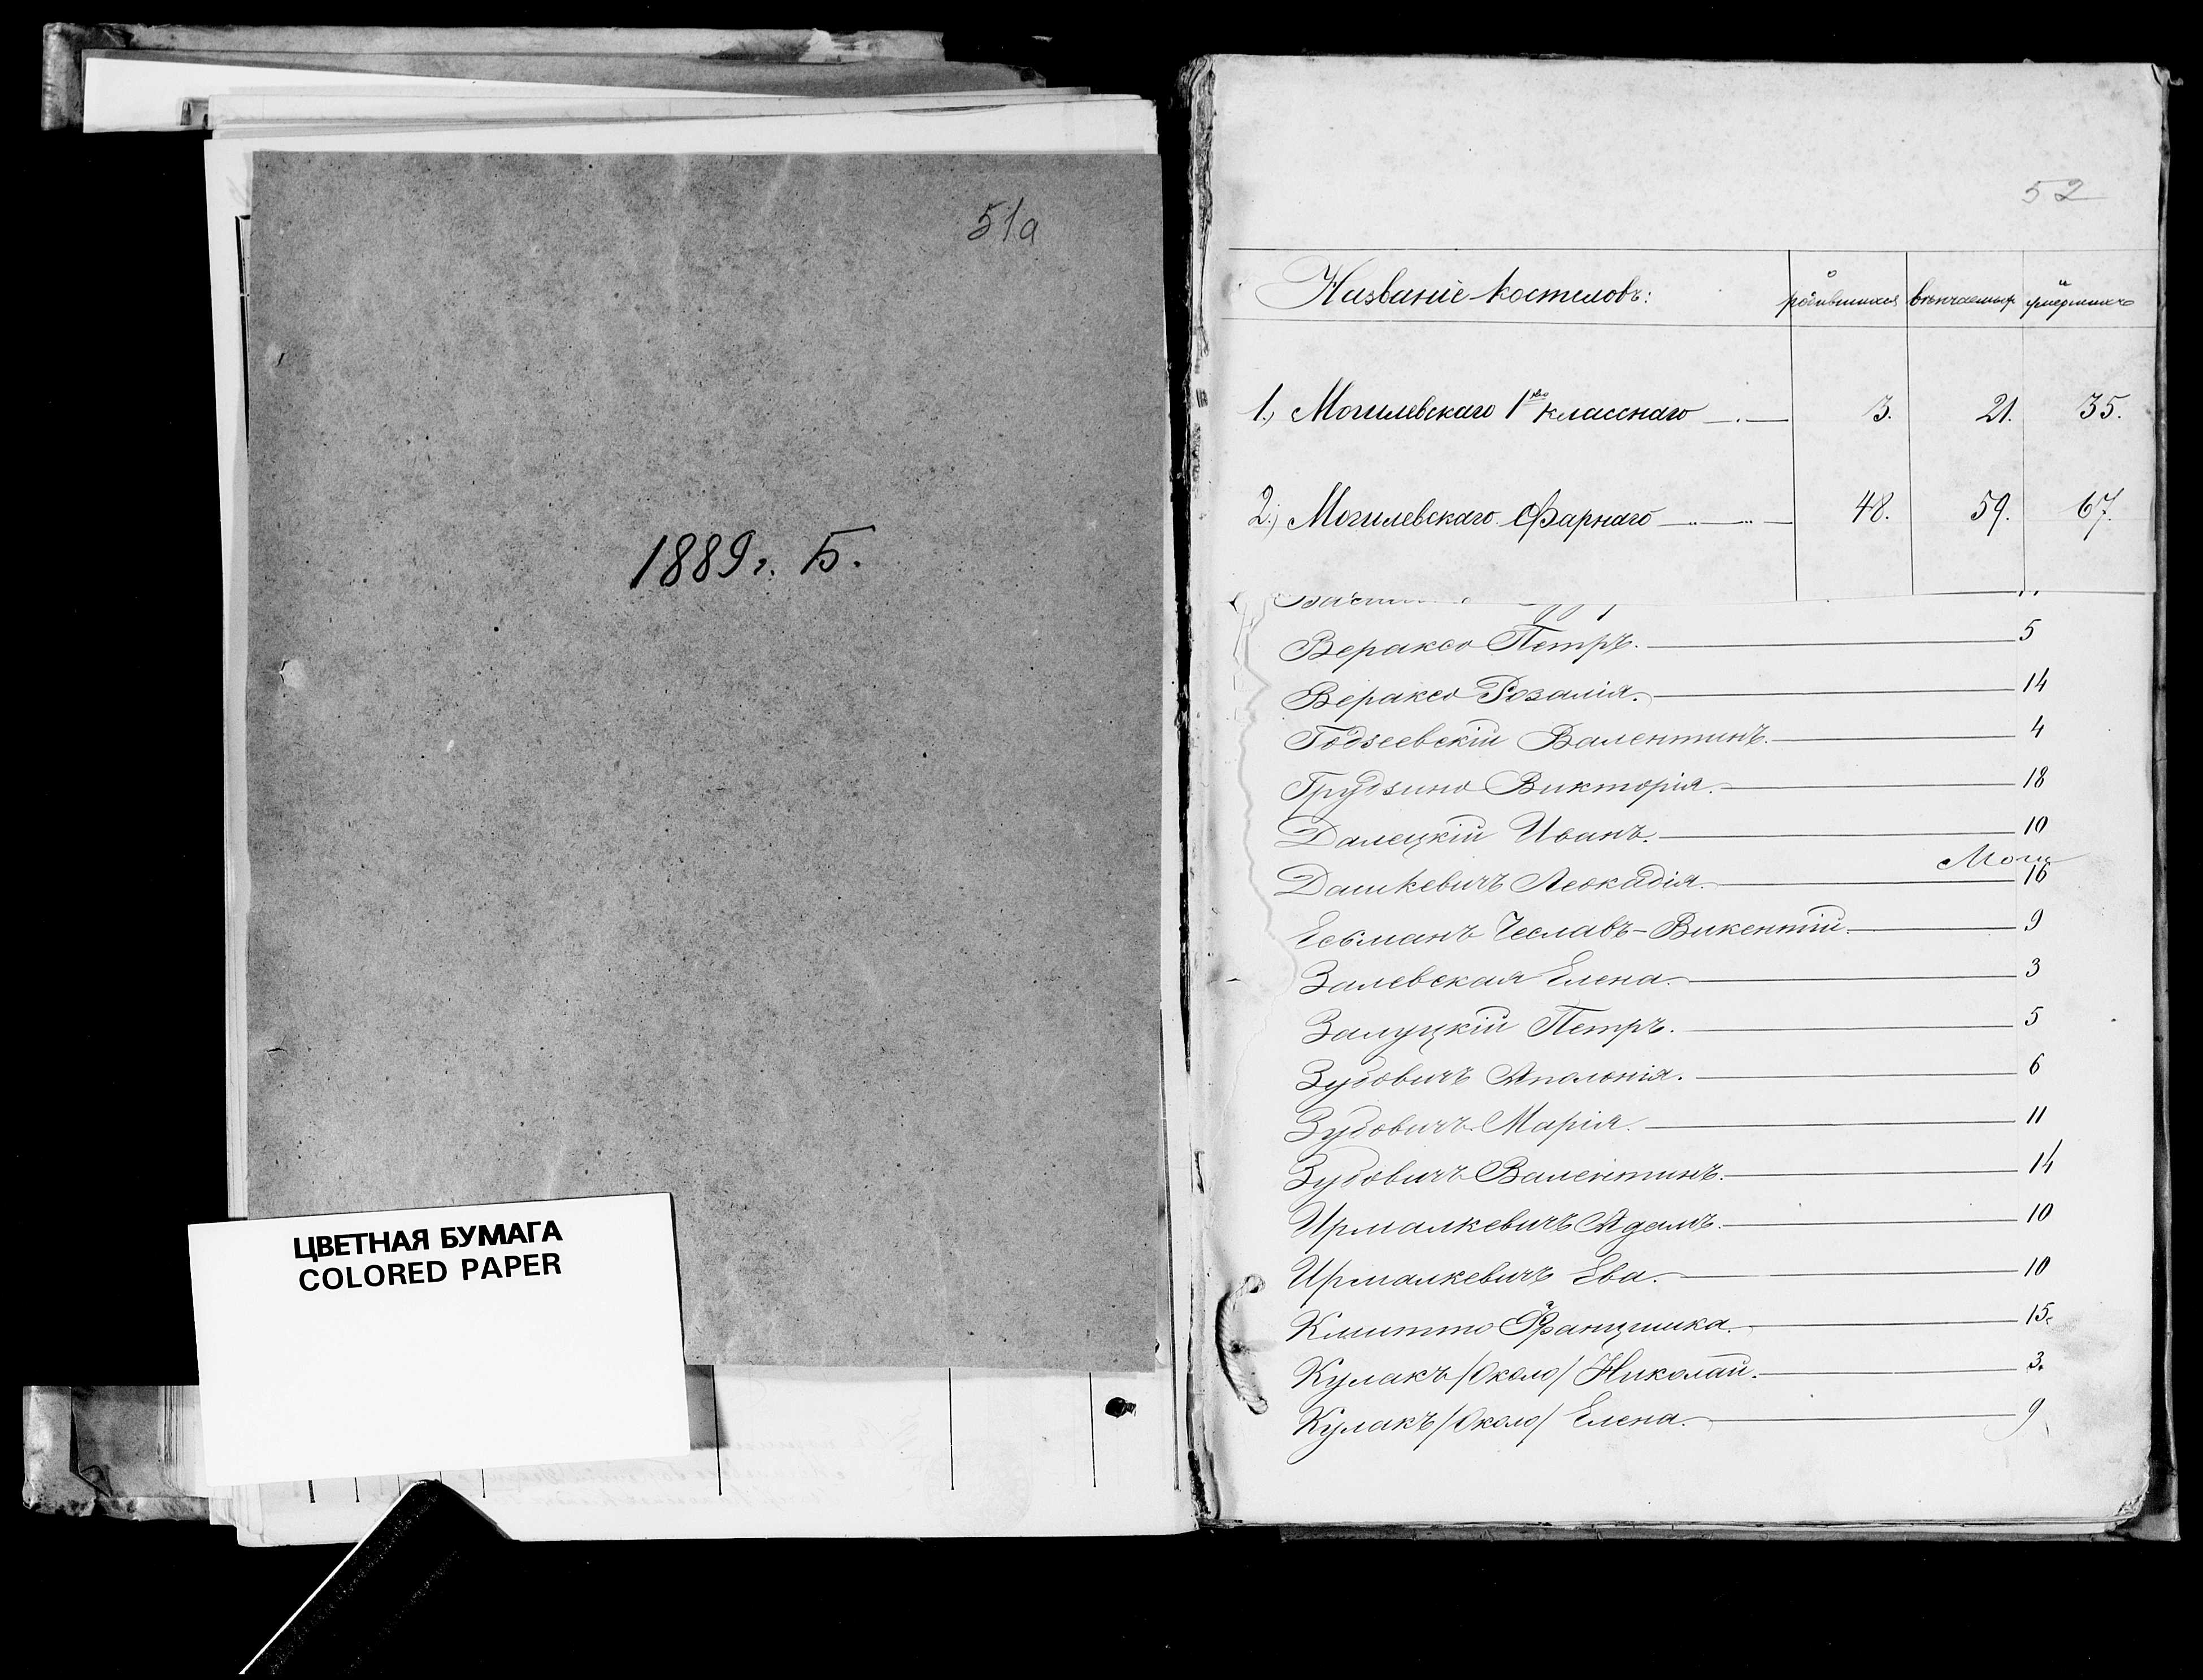 51а
1889 г. Б.
ЦВЕТНАЯ БУМАГА
COLORED PAPER
52
Названіе костеловъ: родившихся вѣнчаемыхъ умершихъ
1.) Могилевскаго 1го класснаго 3. 21. 35.
2.) Могилевскаго Фарнаго 48. 59. 67.
Вераксо Петръ. 5
Вераксо Розалія. 14
Годзеевскій Валентинъ. 4
Грудзино Викторія. 18
Далецкій Иванъ. 10
Дашкевичъ Леокадія. 16
Есьманъ Чеславъ-Викентій. 9
Залевская Елена. 3
Залуцкій Петръ. 5
Зубовичъ Аполонія. 6
Зубовичъ Марія. 11
Зубовичъ Валентинъ. 14
Ирмалкевичъ Адамъ. 10
Ирмалкевичъ Ева. 10
Климто Францишка. 15.
Кулакъ /Около/ Николай. 3.
Кулакъ /Около/ Елена. 9